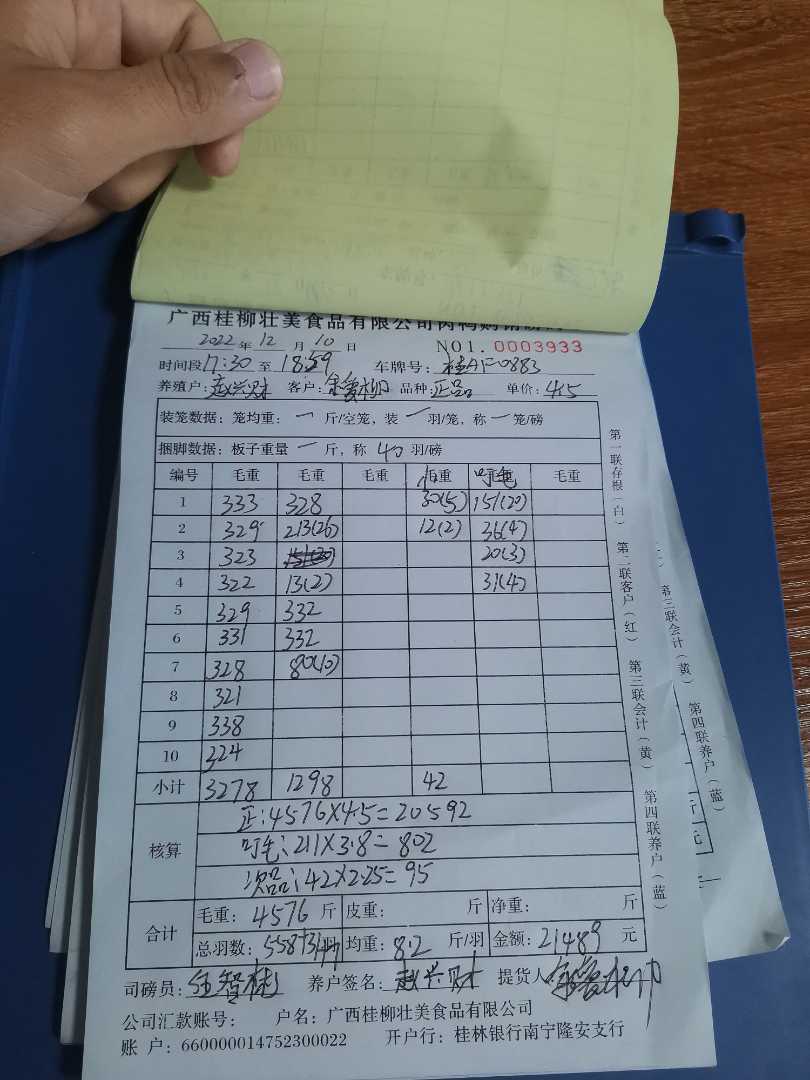 广西桂柳壮美食品有限公司肉鸭购销
2022 年 12 月 10 日 NO1. 0003933
时间段 17:30 至 18:59 车牌号: 桂AF0883
养殖户: 赵兴财 客户: 品种: 正品 单价: 4.5
装笼数据: 笼均重: 一 斤/空笼, 装 一 羽/笼, 称 一 笼/磅
捆脚数据: 板子重量 一 斤, 称 40 羽/磅
编号 毛重 毛重 毛重 毛重 叮毛 毛重
1 333 328 30(5) 151(20)
2 329 213(26) 12(2) 36(4)
3 323 151(20) 20(3)
4 322 13(2) 31(4)
5 329 332
6 331 332
7 328 80(10)
8 321
9 338
10 324
小计 3278 1298 42
核算
正:4576×4.5=20592
叮毛:211×3.8=802
次品:42×2.25=95
合计
毛重: 4576 斤 皮重: 斤 净重: 斤
总羽数: 558+31+7 羽 均重: 8.2 斤/羽 金额: 21489 元
司磅员: 养户签名: 赵兴财 提货人
公司汇款账号: 户名: 广西桂柳壮美食品有限公司
账 户: 660000014752300022 开户行: 桂林银行南宁隆安支行
第一联存根(白)
第二联客户(红)
第三联会计(黄)
第四联养户(蓝)
第三联会计(黄)
第四联养户(蓝)
斤
元